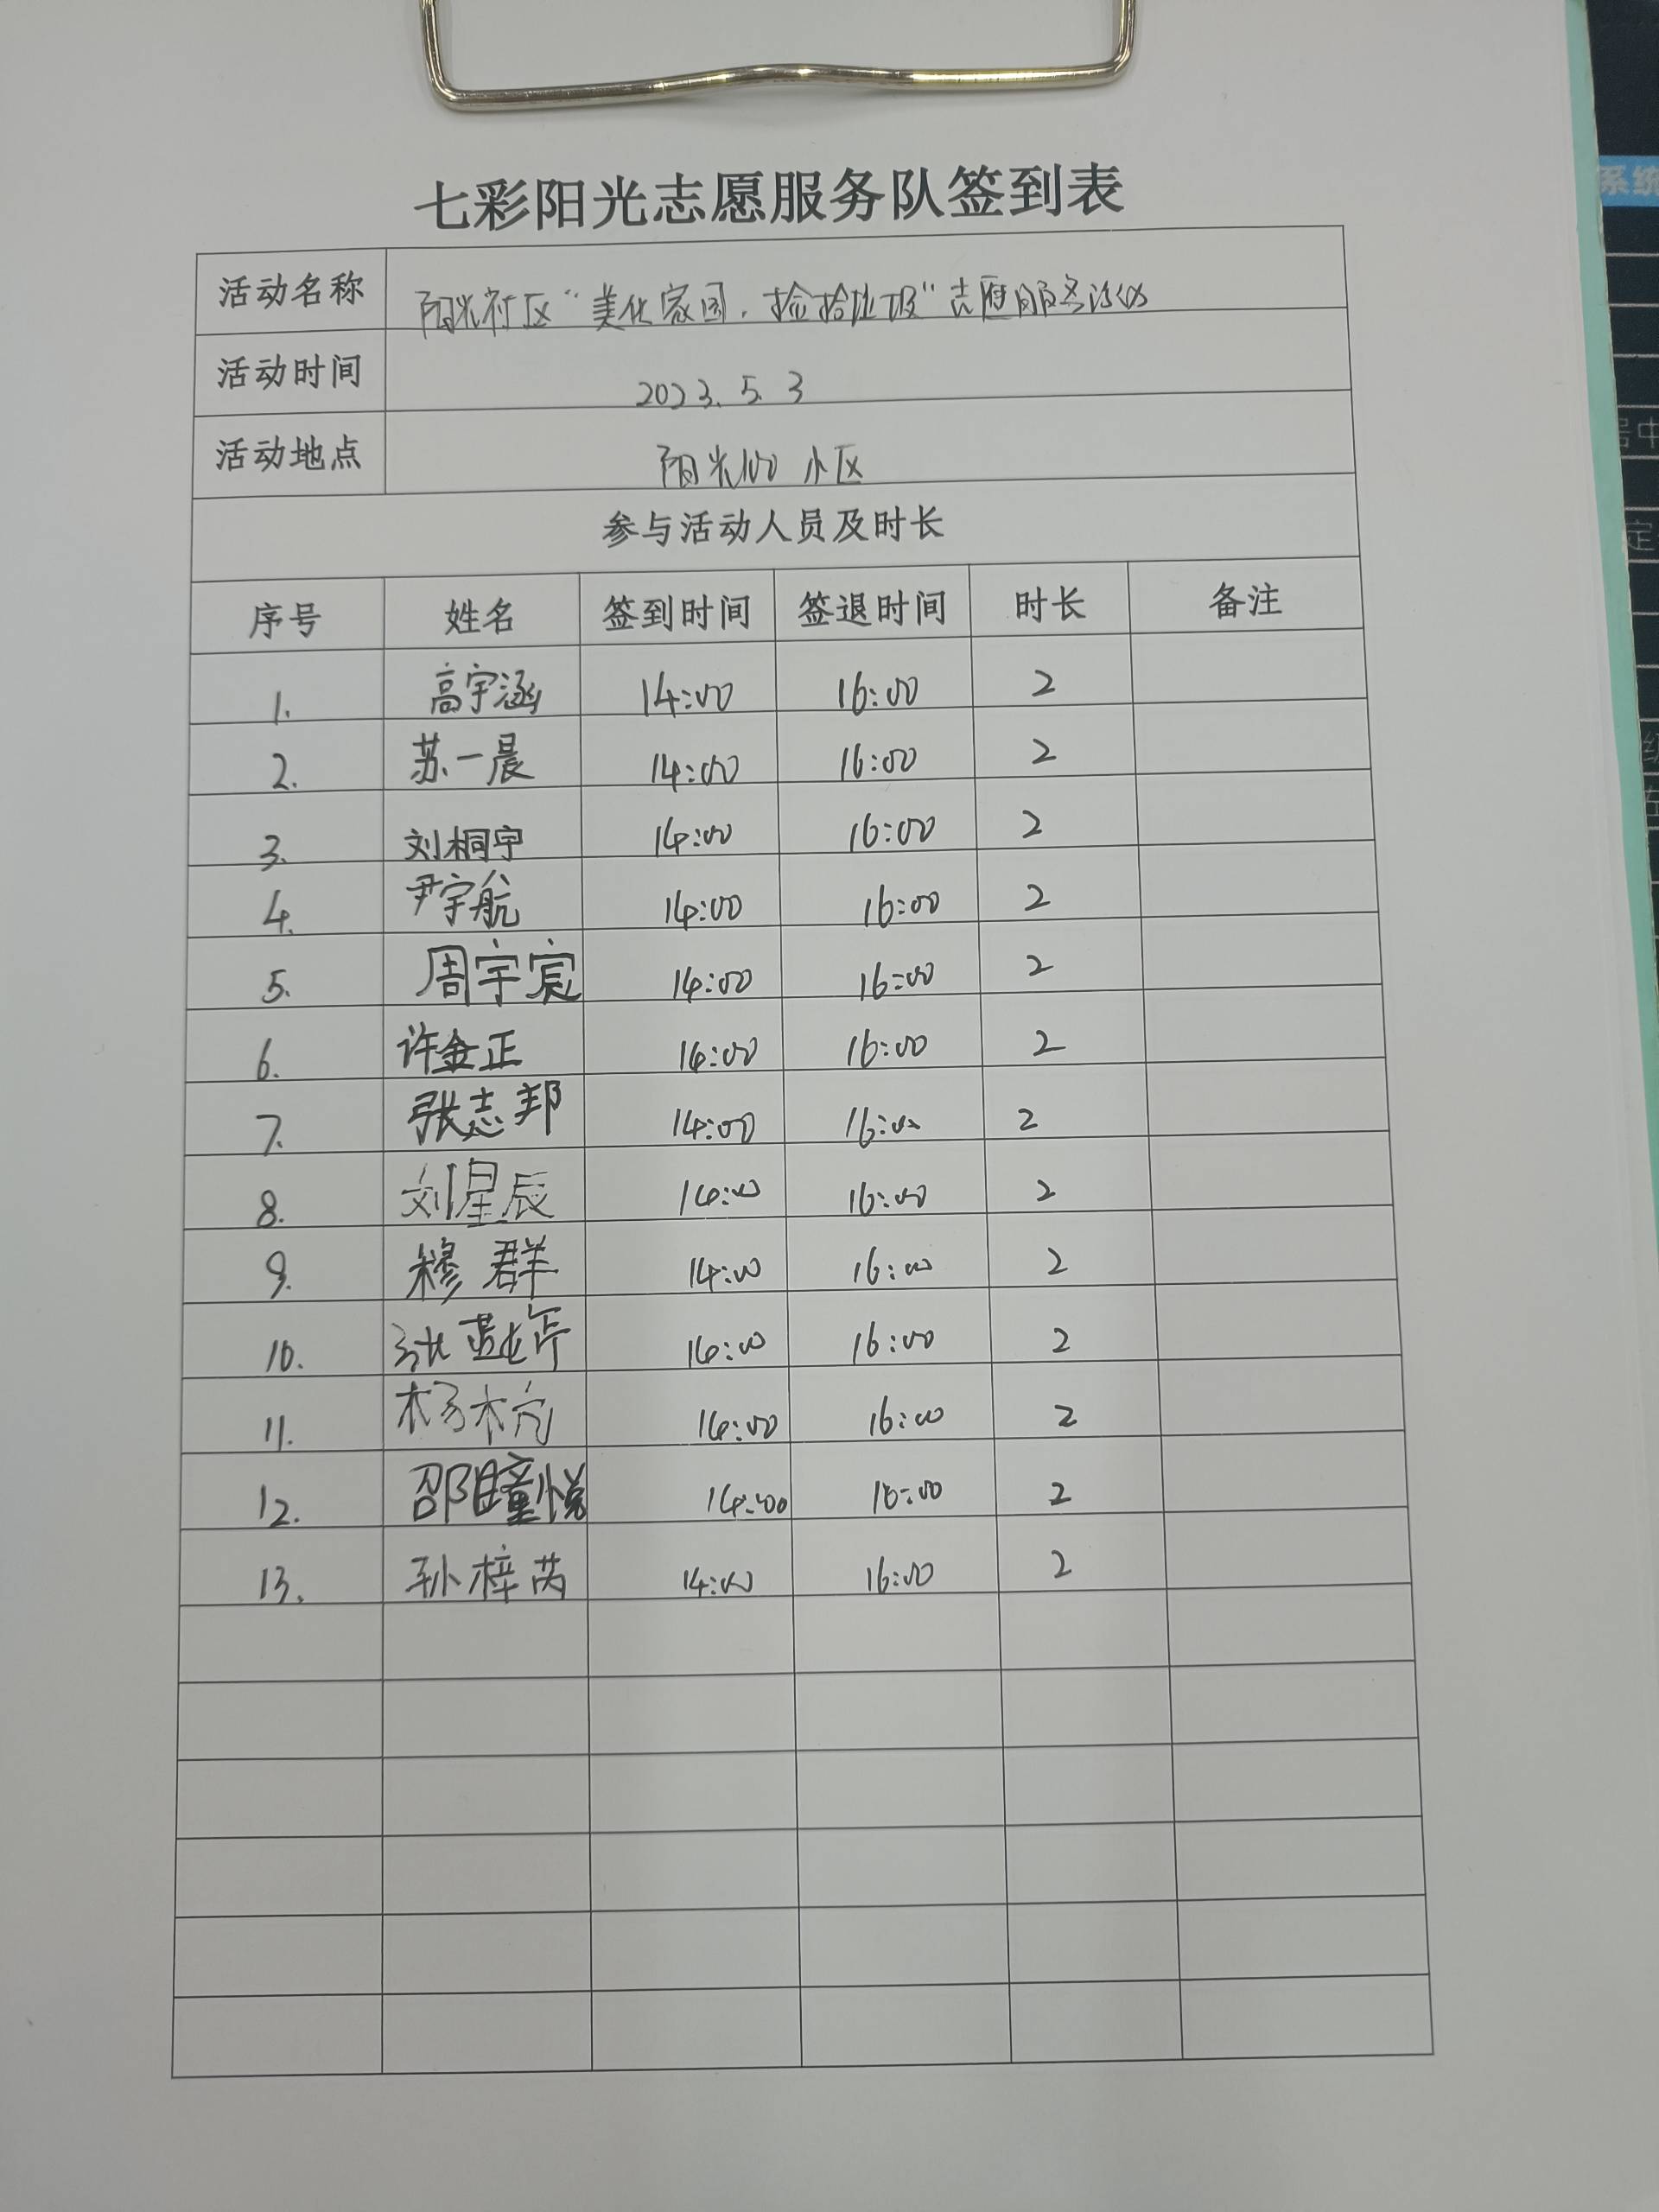 七彩阳光志愿服务队签到表
活动名称 阳光社区“美化家园，捡拾垃圾”志愿服务活动
活动时间 2023.5.3
活动地点 阳光100小区
参与活动人员及时长
序号 姓名 签到时间 签退时间 时长 备注
1. 高宇涵 14:00 16:00 2
2. 苏一晨 14:00 16:00 2
3. 刘桐宇 14:00 16:00 2
4. 尹宇航 14:00 16:00 2
5. 周宇寰 14:00 16:00 2
6. 许金正 14:00 16:00 2
7. 张志邦 14:00 16:00 2
8. 刘星辰 14:00 16:00 2
9. 穆群 14:00 16:00 2
10. 14:00 16:00 2
11. 14:00 16:00 2
12. 邵阳瞳悦 14:00 16:00 2
13. 孙梓芮 14:00 16:00 2
系统
定